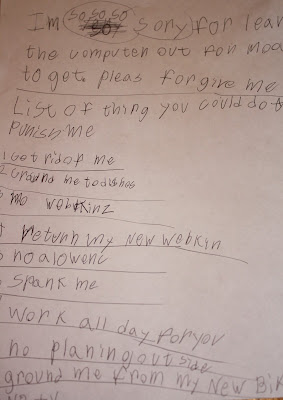 Im so so so sory for lear
the computer out for moa
to get. pleas forgive me
List of thing you could do t
Punish me
1 Get rid of me
2. Ground me
mo webkinz
return my new webkin
no alowenc
spank me
work all day for you
no planing out side
ground me from my New Bir